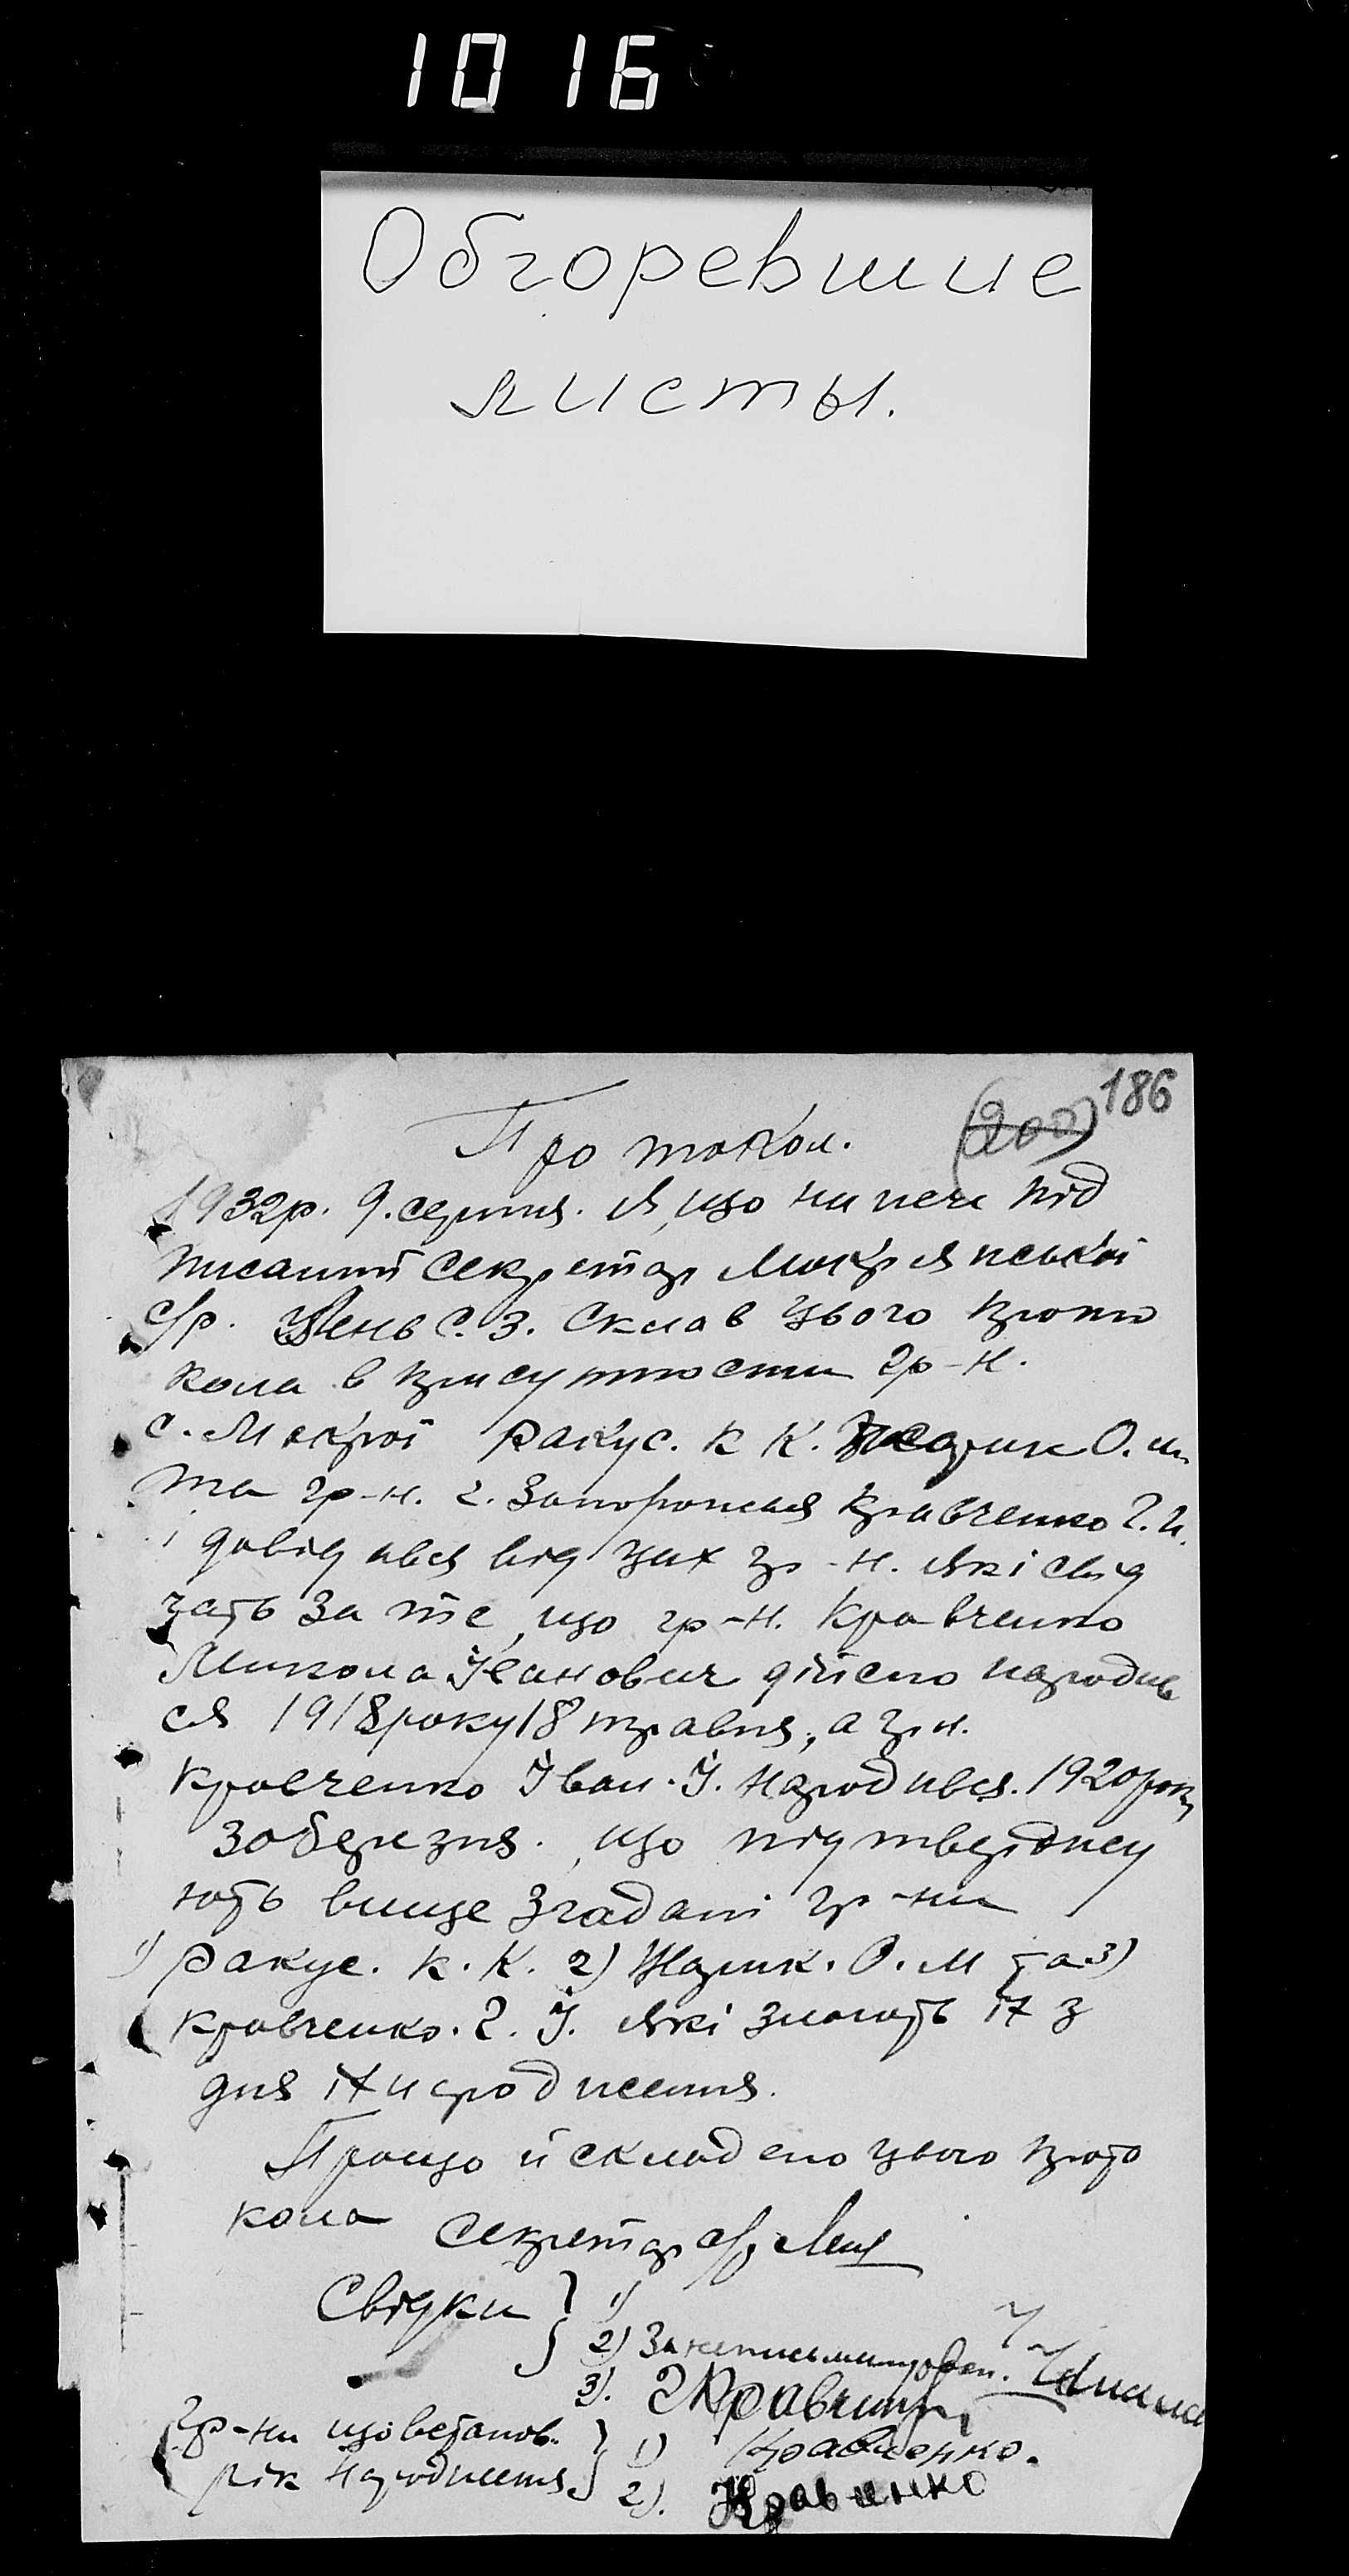 1016
Обгоревшие
листы.
(200) 186
Протокол.
1932р. 9. серпня. Я, що нижче під
писаний секретар Мокрянської
с/р. С. З. склав цього прото
кола в присутности гр-н.
с. Мокрої Ракус. К К. О. М
та гр-н. г. Запоріжжя Кравченко Г. И.
і довідався від цих гр-н. які свід
чать за те, що гр-н. Кравченко
Микола Іванович дійсно народив
ся 1918 року 18 травня, а гр н.
Кравченко Іван. І. народився. 1920 року
30 березня. , що підтверджу
ють вище згадані гр-ни
1) Ракус. К. К. 2) О. М та 3)
Кравченко. Г. І. які знають їх з
дня їх народження.
Прощо й складено цього прото
кола
Секретар с/р
Свідки } 1)
2) За неписьменного
3). Г Кравченко
гр-ни що встанов.
рік народження } 1) Кравченко.
2). Кравченко